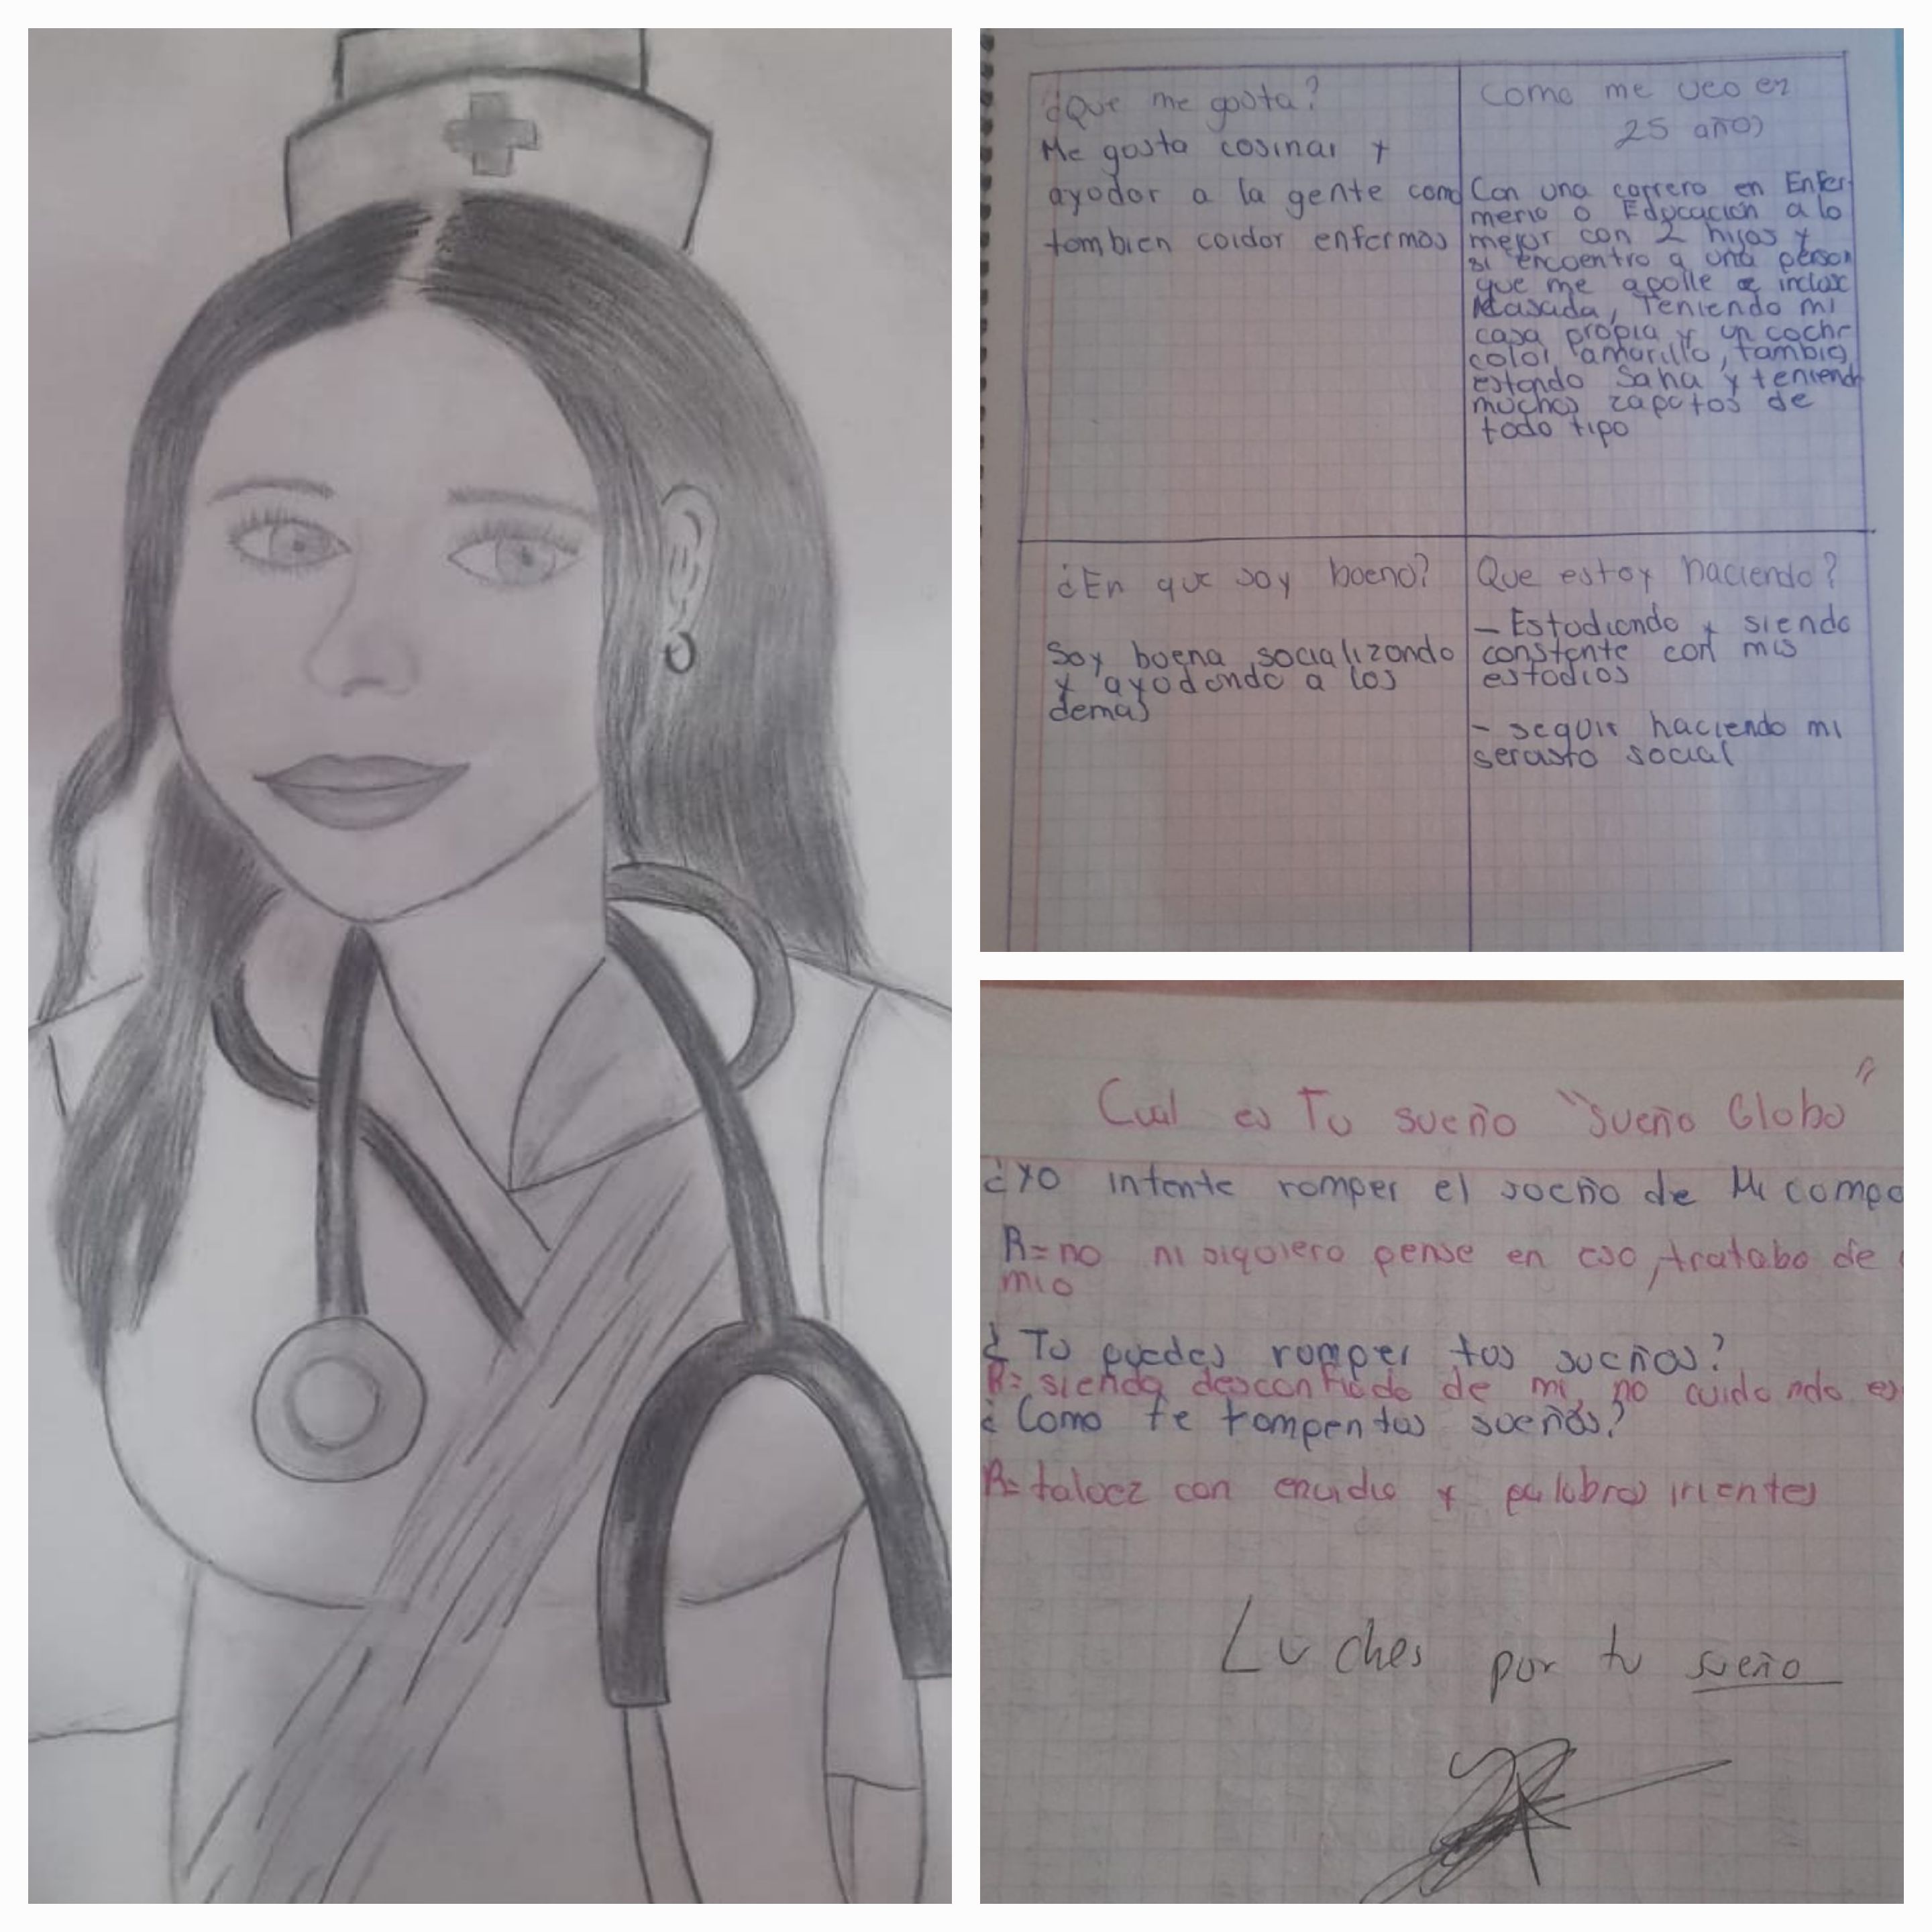 ¿Que me gusta?
Me gusta cosinar y
ayudar a la gente como
tambien cuidar enfermos
Como me veo en
25 años
Con una carrera en Enfer-
meria o Educación a lo
mejor con 2 hijos y
si encuentro a una person
que me apolle e inclox
casada, Teniendo mi
casa propia y un coche
color amarillo, tambie
estando Sana y teniendo
muchos zapatos de
todo tipo
¿En que soy bueno?
Soy buena socializando
y ayudando a los
demas
Que estoy haciendo?
- Estudiando y siendo
constante con mis
estudios
- seguir haciendo mi
social
Cual es Tu sueño "Sueño Globo"
¿Yo intente romper el sueño de Mi compa
R= no ni siquiera pense en eso, trataba de
mio
¿Tu puedes romper tus sueños?
R= siendo desconfiada de mi, no cuidando es
¿Como te rompen tus sueños?
R= talvez con envidia y palabras irientes
Luches por tu sueño